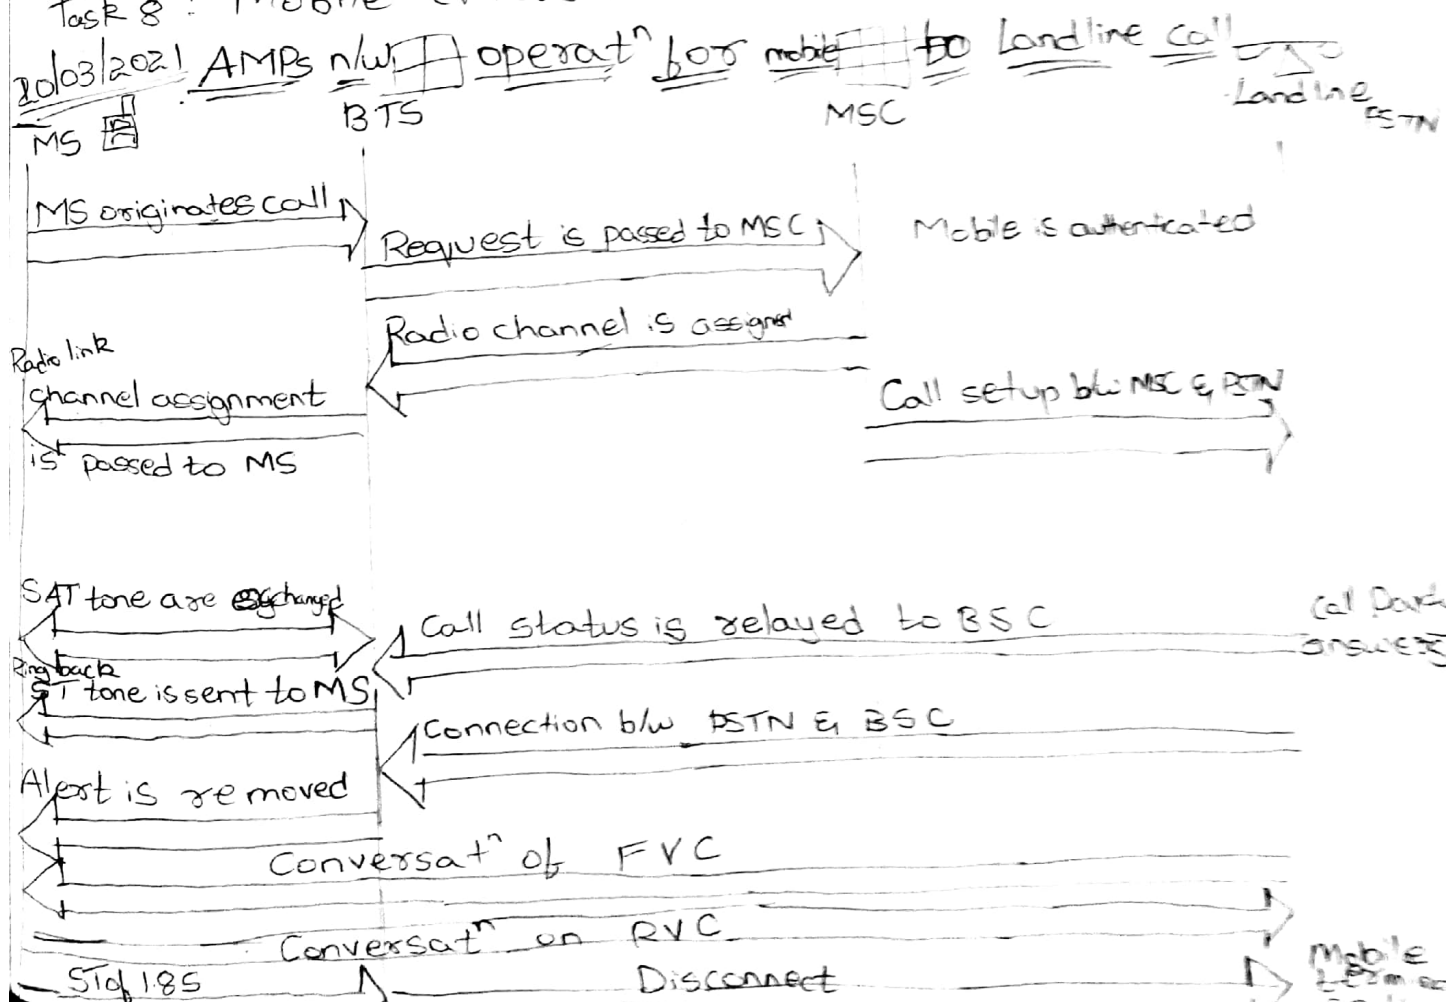 Task 8 : Mobile
20/03/2021 AMPs n/w operatⁿ for mobile to Landline call
MS
BTS
MSC
Landline
PSTN
MS originates call
Request is passed to MSC
Mobile is authenticated
Radio channel is assigned
Radio link
channel assignment
is passed to MS
Call setup b/w MSC & PSTN
SAT tone are exchanged
Call status is relayed to BSC
answers
Ring back
ST tone is sent to MS
Connection b/w PSTN & BSC
Alert is removed
Conversatⁿ of FVC
Conversatⁿ on RVC
ST of 1.85
Disconnect
Mobile